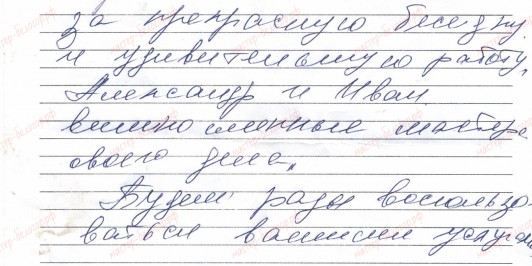 за прекрасную беседку
и удивительную работу,
Александр и Иван
великолепные мастера
своего дела.
Будем рады воспользо-
ваться вашими услугами